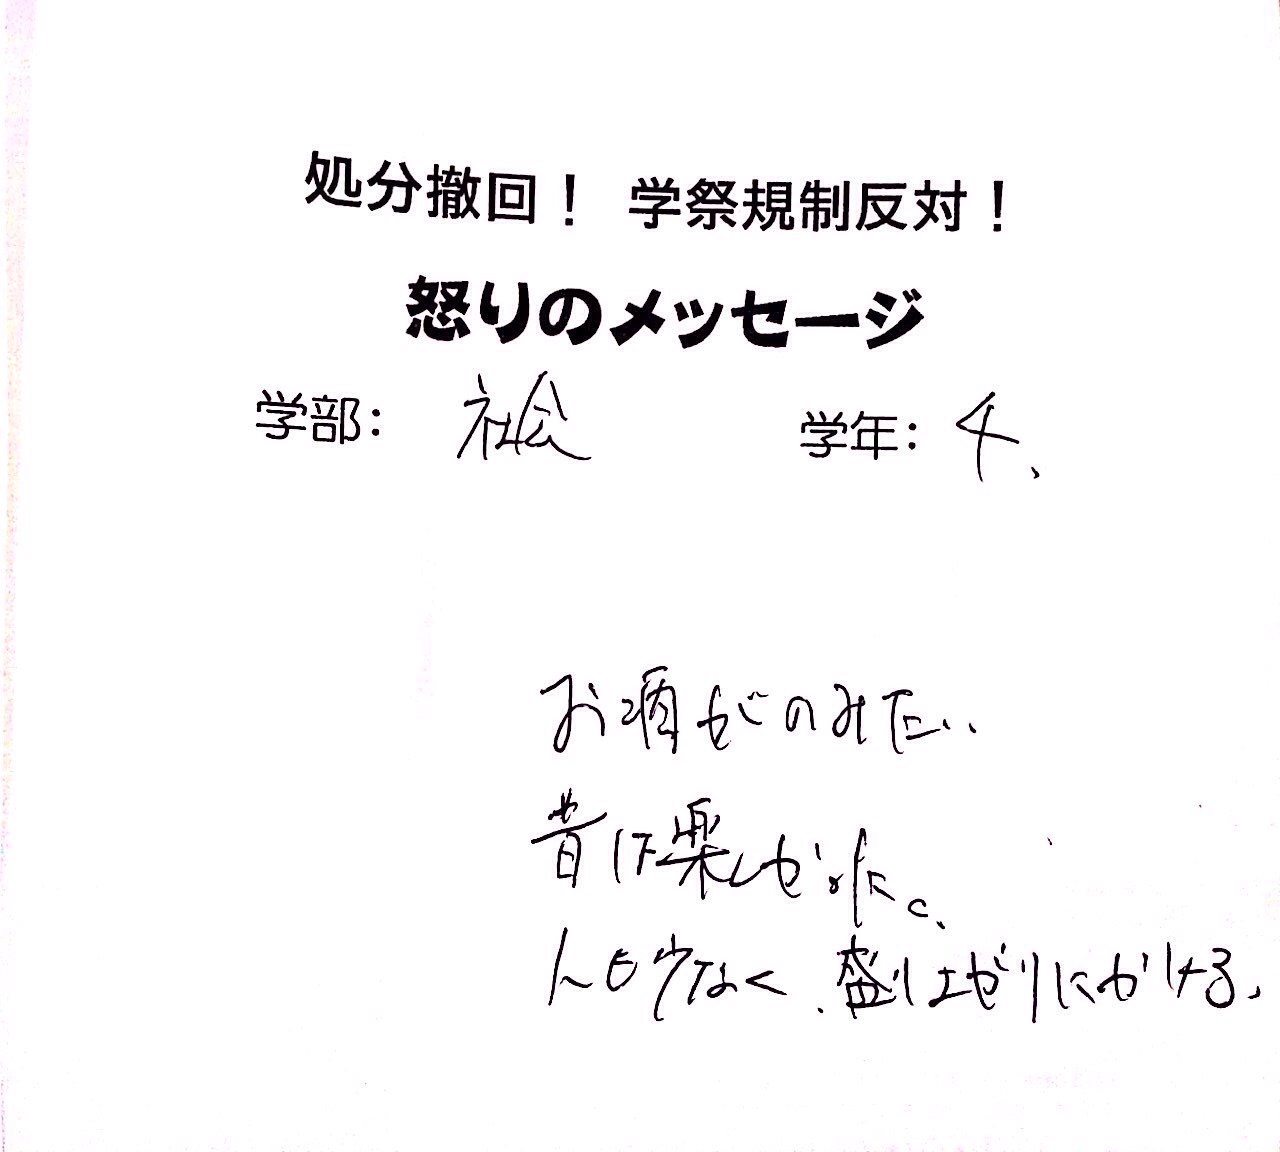 処分撤回! 学祭規制反対!
怒りのメッセージ
学部: 社会 学年: 4、
お酒がのみたい
昔は楽しかった。
人も少なく、盛り上がりにかける、